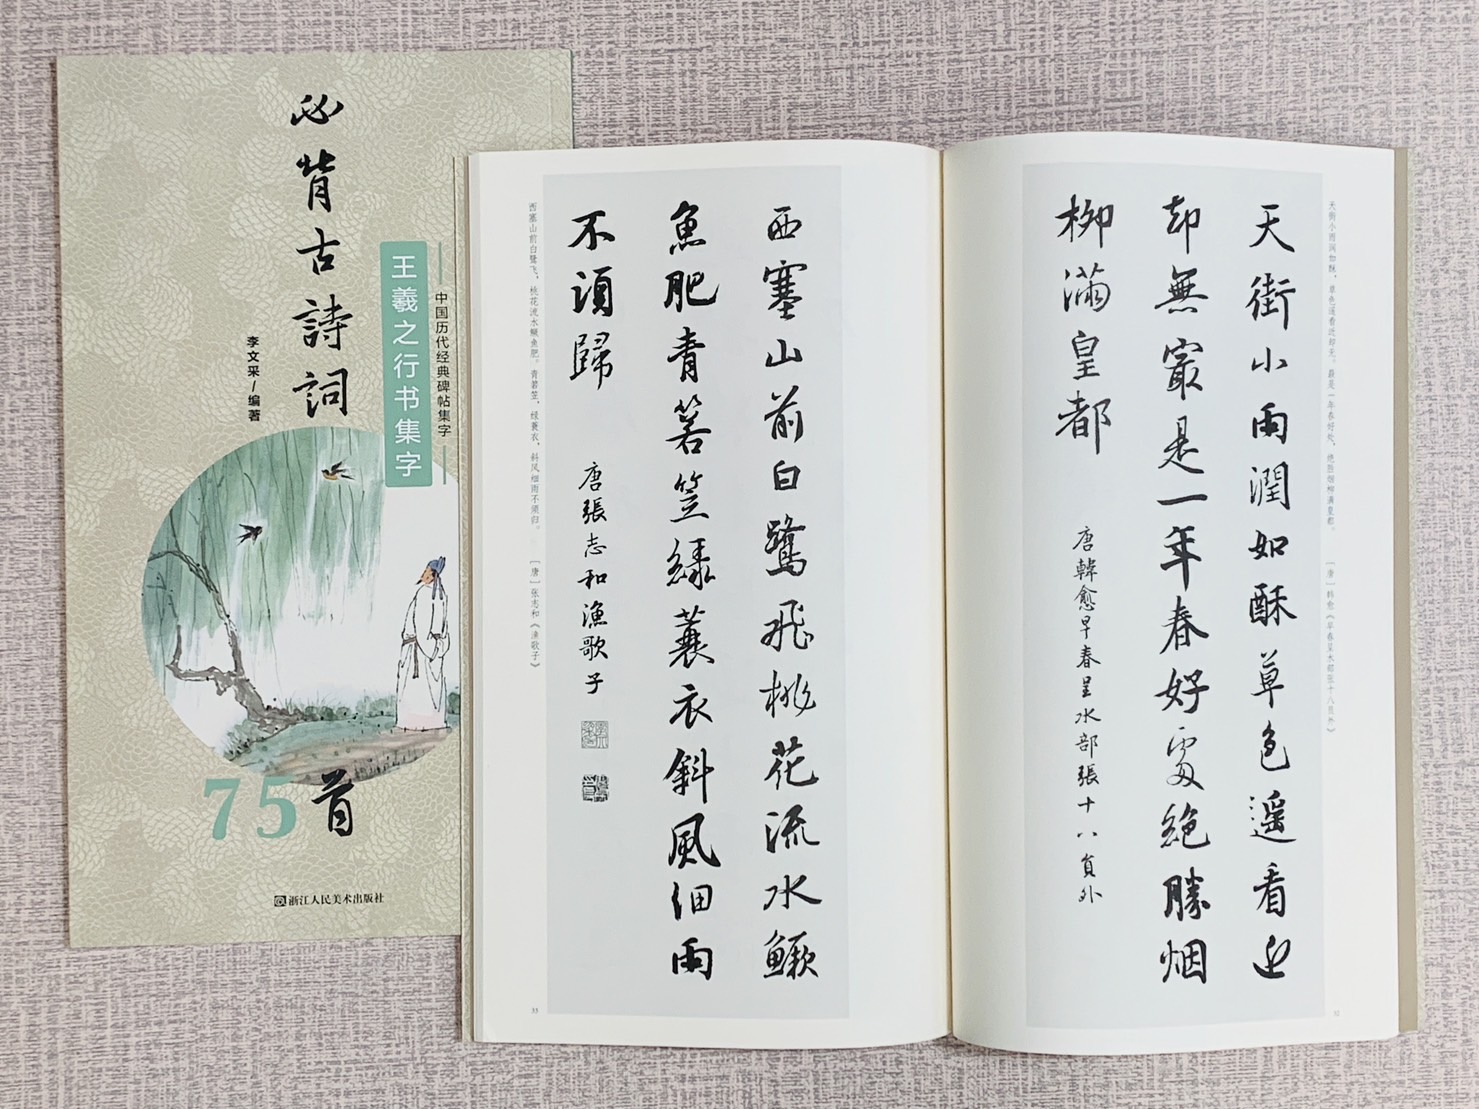 必背古詩詞
75首
王羲之行书集字
中国历代经典碑帖集字
李文采/编著
浙江人民美术出版社
天街小雨潤如酥草色遥看近
却無寂是一年春好處绝勝烟
柳滿皇都
唐韓愈早春呈水部張十八員外
天街小雨润如酥，草色遥看近却无。最是一年春好处，绝胜烟柳满皇都。
［唐］韩愈《早春呈水部张十八员外》
32
西塞山前白鷺飛桃花流水鱖
魚肥青箬笠緑蓑衣斜風细雨
不須歸
唐張志和漁歌子
西塞山前白鹭飞，桃花流水鳜鱼肥。青箬笠，绿蓑衣，斜风细雨不须归。
［唐］张志和《渔歌子》
33